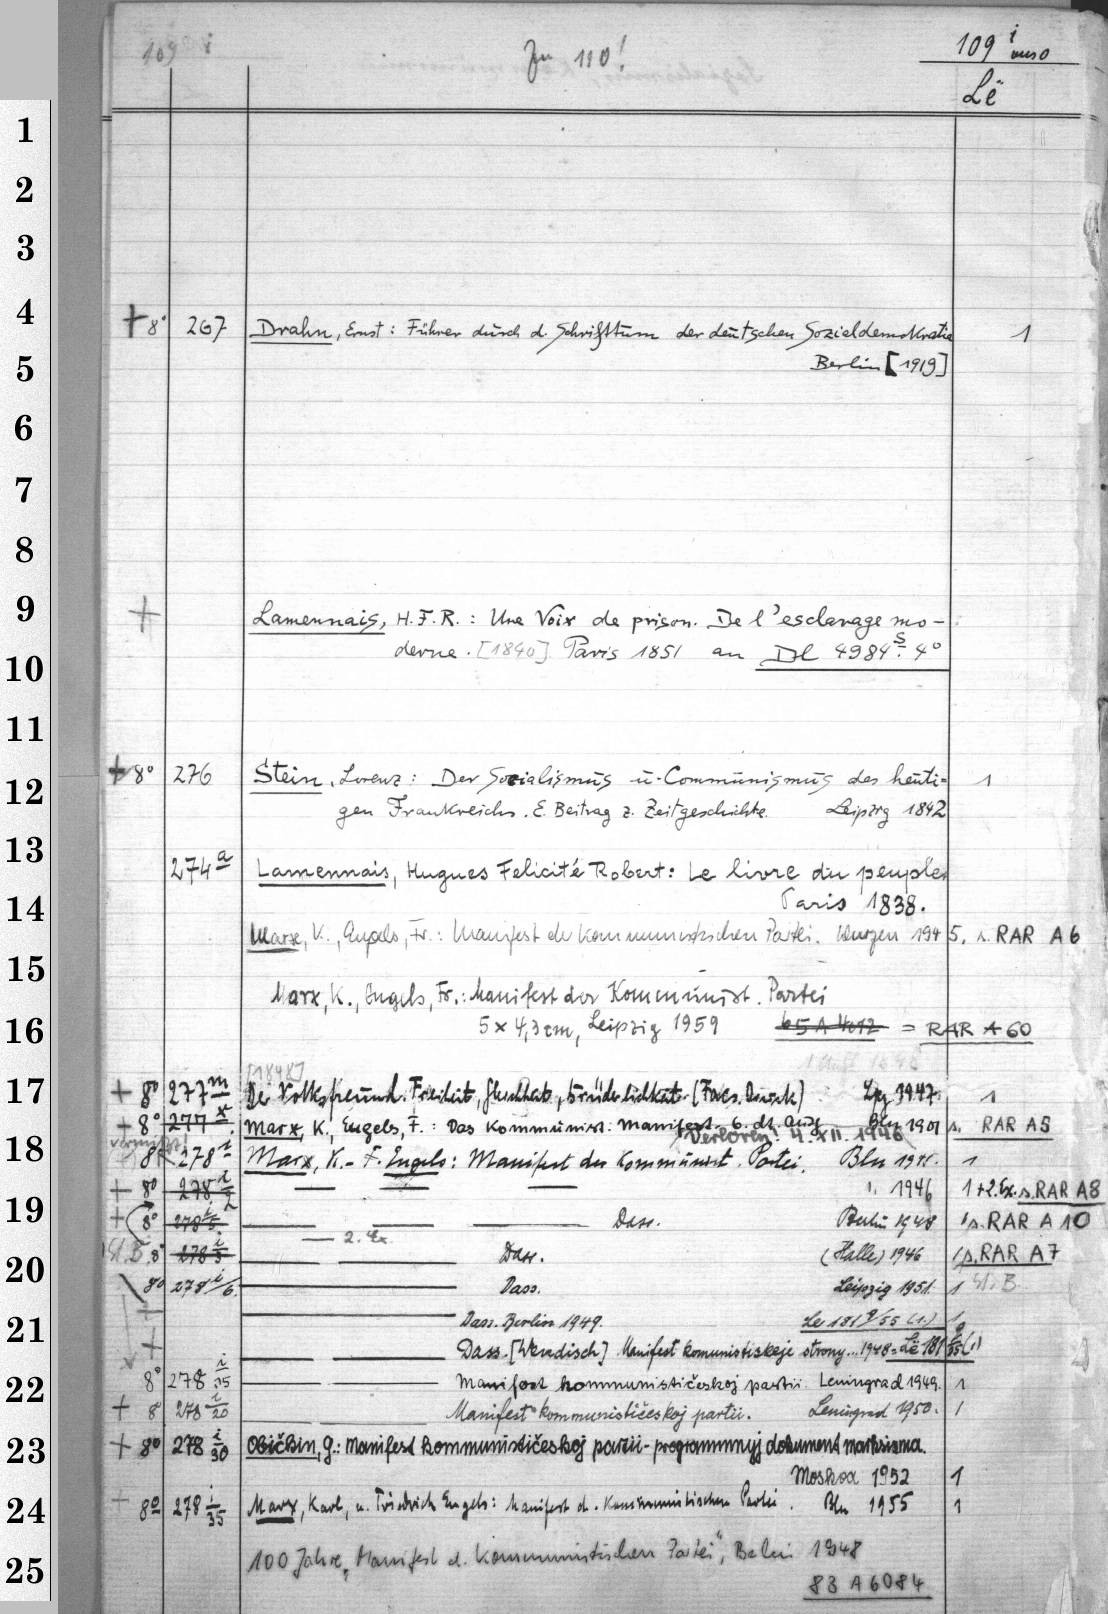 109 i
Zu 110!
109 i
Lë
1
2
3
4
+ 8° 267 Drahn, Ernst: Führer durch d. Schrifttum der deutschen Sozialdemokratie 1
5
Berlin [1919]
6
7
8
9
+ Lamennais, H.F.R.: Une Voix de prison. De l'esclavage mo-
10
derne. [1840] Paris 1851 an Dl 4984 s. 4°
11
+ 8° 276 Stein, Lorenz: Der Socialismus u. Communismus des heuti= 1
12
gen Frankreichs. E. Beitrag z. Zeitgeschichte. Leipzig 1842
13
274 a Lamennais, Hugues Felicité Robert: Le livre du peuple
14
Paris 1838.
Marx, K., Engels, Fr.: Manifest der kommunistischen Partei. Wurzen 1945. s. RAR A 6
15
Marx, K., Engels, Fr.: Manifest der Kommunist. Partei
16
5 x 4,3 cm, Leipzig 1959 65 A 4012 = RAR A 60
[1848]
17
+ 8° 277 m Der Volksfreund. Freiheit, Gleichheit, Brüderlichkeit. (Facs. Druck) Lpz 1947. 1
+ 8° 277 x. Marx, K., Engels, F.: Das Kommunist. Manifest. 6. dt. Ausg Bln 1901 s. RAR A5
vermißt! Verloren! 4. XII. 1946
18
8° 278 i Marx, K. - F. Engels: Manifest der Kommunist. Partei. Bln 1 1
+ 8° 278 i/2 — — — 1946 1+2. Ex. s. RAR A8
19
+ 8° 278 i/3 — — — Dass. Berlin 1948 1 s. RAR A 10
— 2. Ex.
St. B. 8° 278 i/5 — — Dass. (Halle) 1946 1 s. RAR A7
20
8° 278 i/6. — Dass. Leipzig 1951. 1 St. B.
21
+ — Dass. Berlin 1949. 1
+ — — Dass. [Wendisch] Manifest komunistiskeje strony... 1948 = Lë 181
22
8° 278 i/15 — — Manifest kommunističeskoj partii. Leningrad 1949. 1
+ 8 278 i/20 — — Manifest kommunističeskoj partii. Leningrad 1950. 1
23
+ 8° 278 i/30 Običkin, G.: Manifest kommunističeskoj partii - programmnyj dokument marksizma.
Moskva 1952 1
24
+ 8° 278 i/35 Marx, Karl, u. Friedrich Engels: Manifest d. Kommunistischen Partei. Bln 1955 1
25
100 Jahre „Manifest d. Kommunistischen Partei", Berlin 1948
83 A 6084